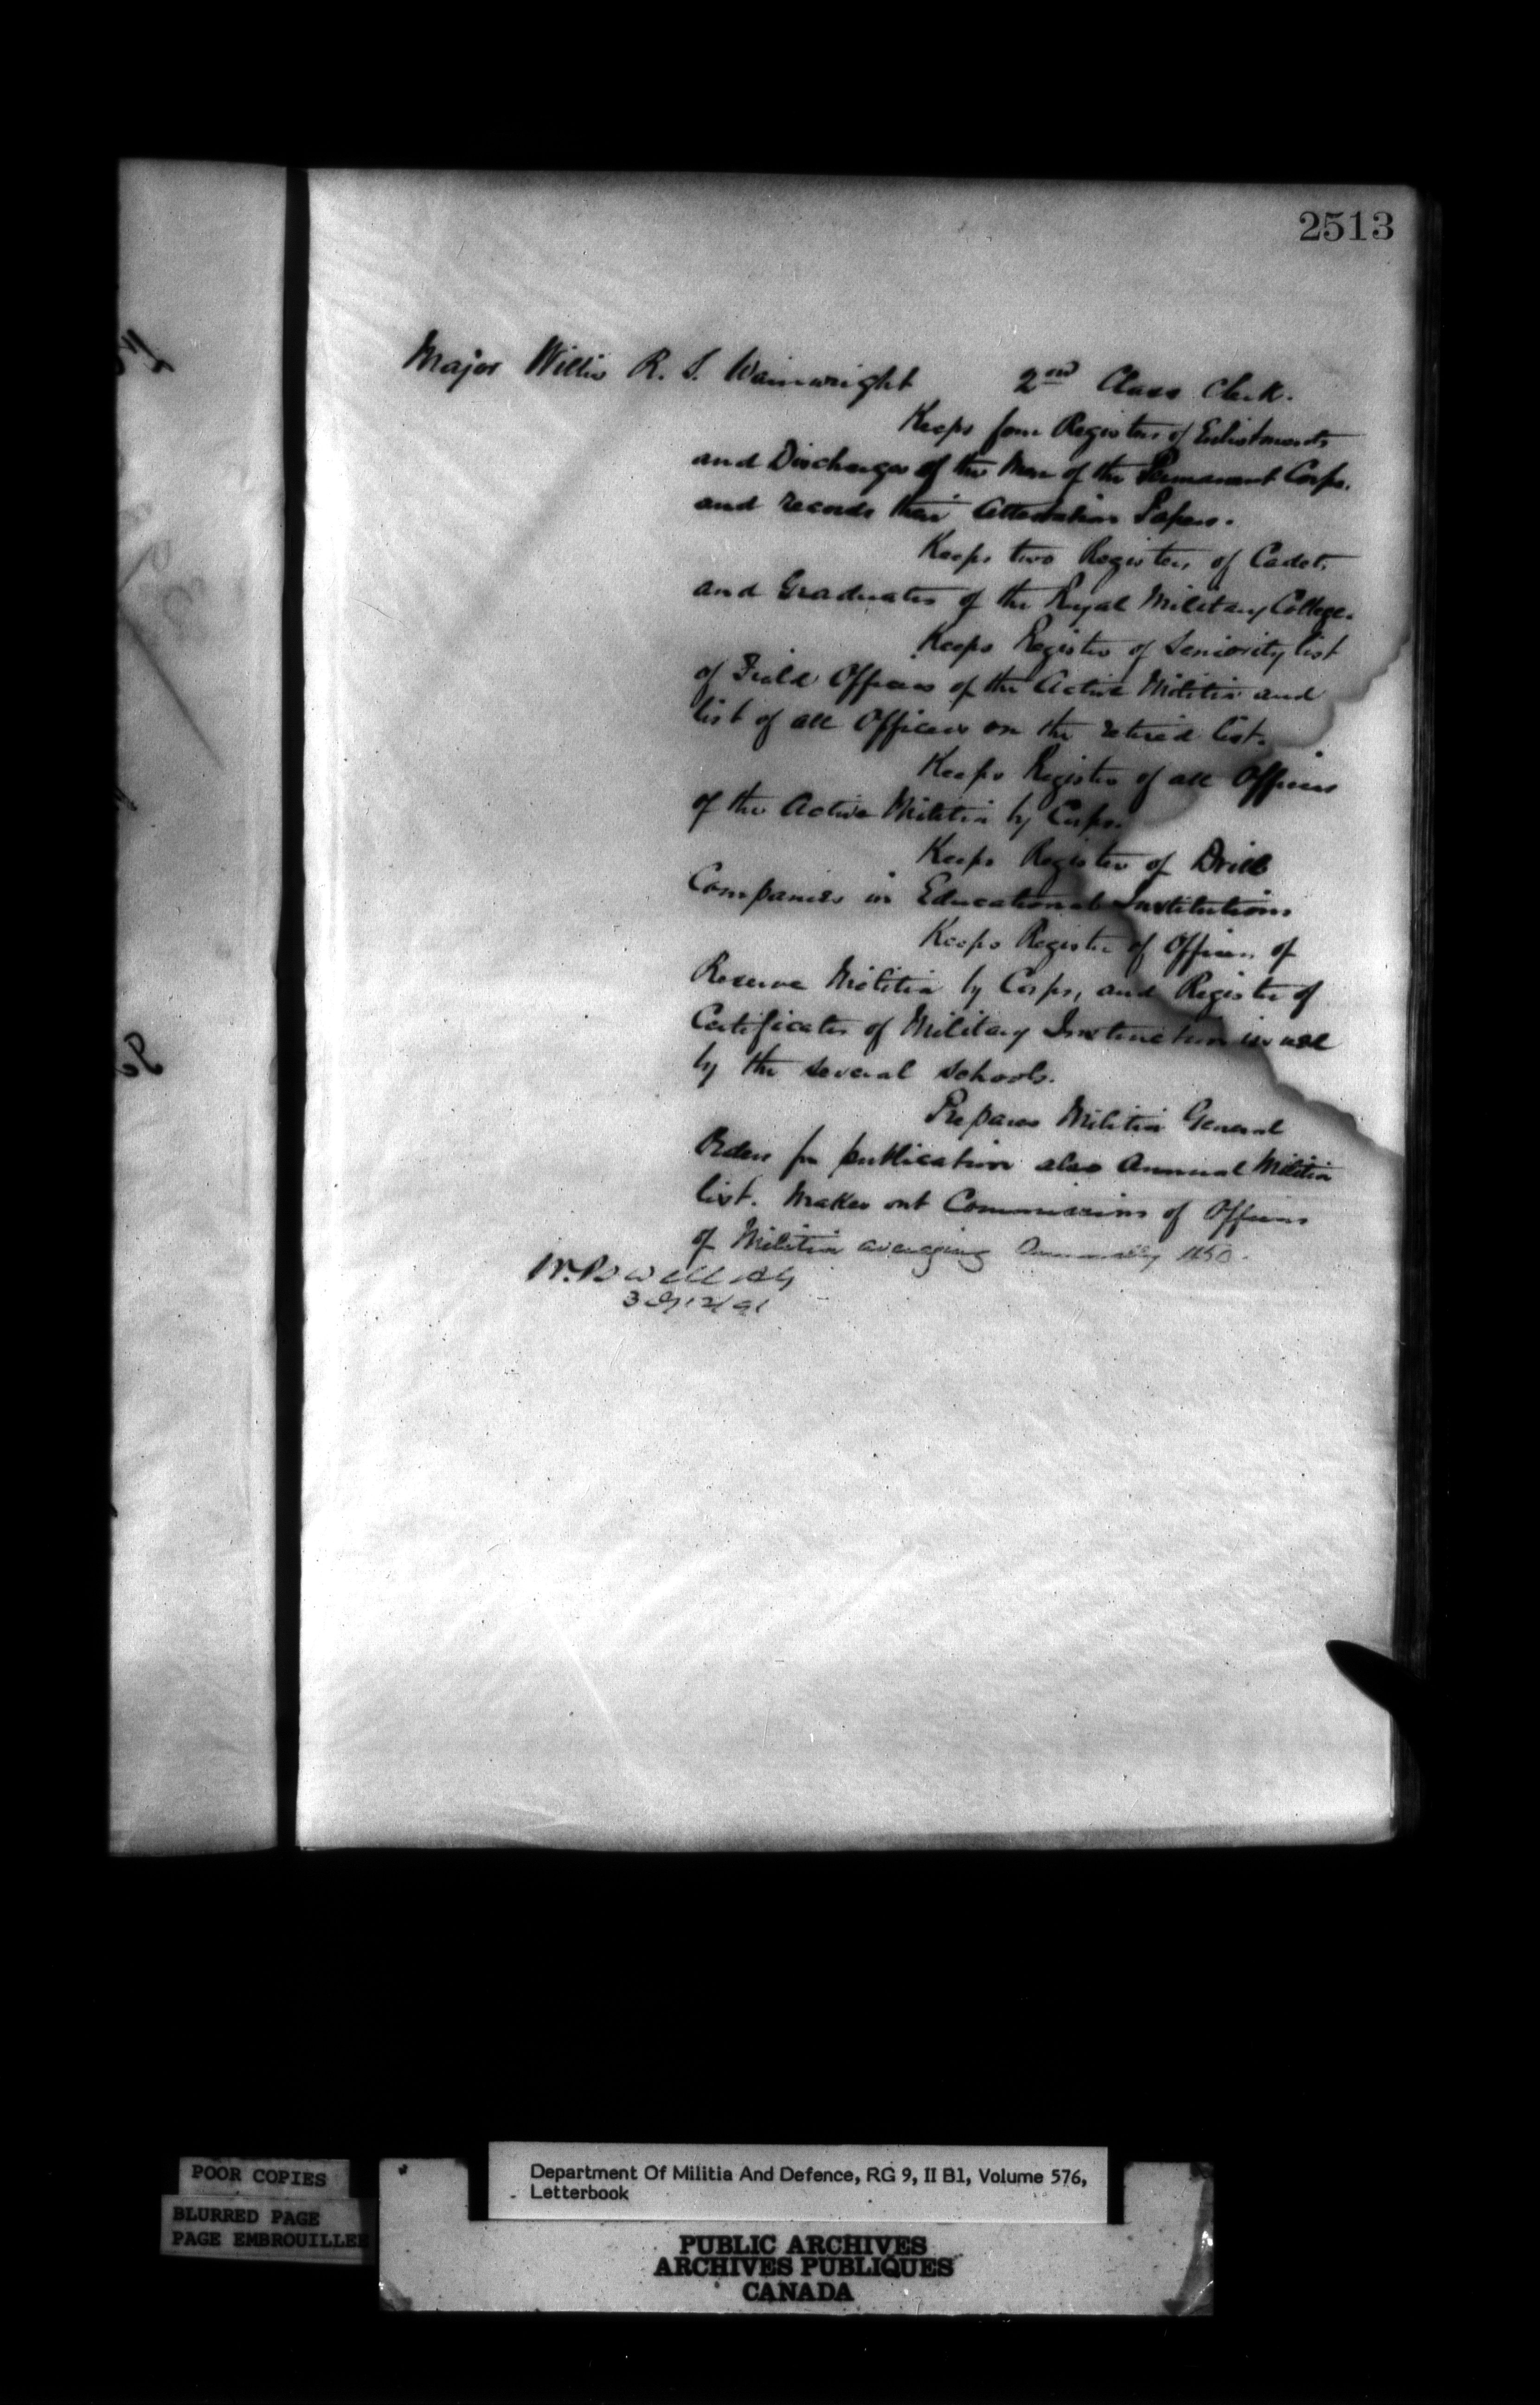 2513
Major Willis R. S. Wainwright 2nd Class Clerk.
Keeps four Registers of Enlistments
and Discharges of the Men of the Permanent Corps,
and records their Attestation Papers.
Keeps two Registers of Cadets
and Graduates of the Royal Military College.
Keeps Register of Seniority list
of Field Officers of the Active Militia and
list of all Officers on the retired list.
Keeps Register of all Officers
of the Active Militia by Corps.
Keeps Register of Drill
Companies in Educational Institutions
Keeps Register of Officers of
Reserve Militia by Corps, and Register of
Certificates of Military Instruction in use
by the several schools.
Prepares Militia General
Orders for publication also Annual Militia
list. Makes out Commissions of Officers
of Militia averaging Annually
W. Powell AG
POOR COPIES
BLURRED PAGE
PAGE EMBROUILLEE
Department Of Militia And Defence, RG 9, II B1, Volume 576,
Letterbook
PUBLIC ARCHIVES
ARCHIVES PUBLIQUES
CANADA